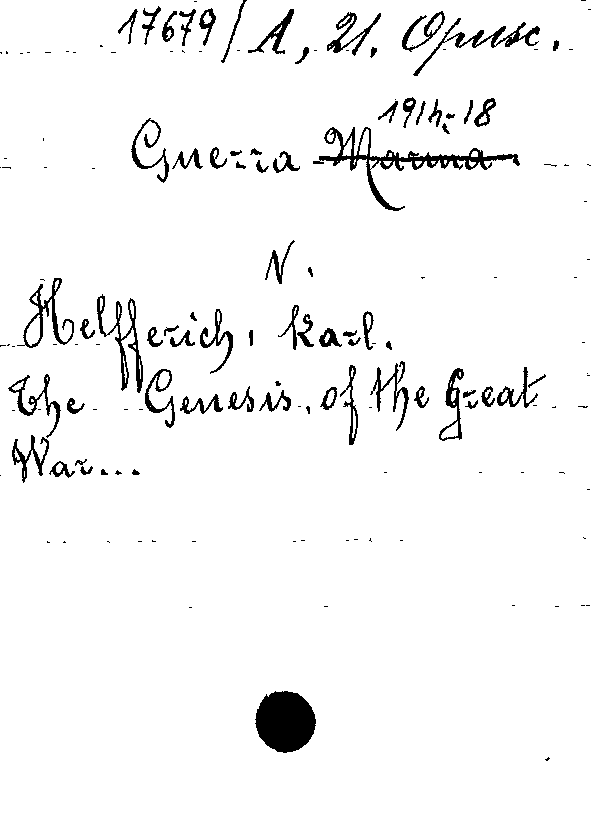 17679/A, 21. Opusc.
1914-18
Guerra Marina.
N.
Helfferich, Karl.
The Genesis of the Great
War...